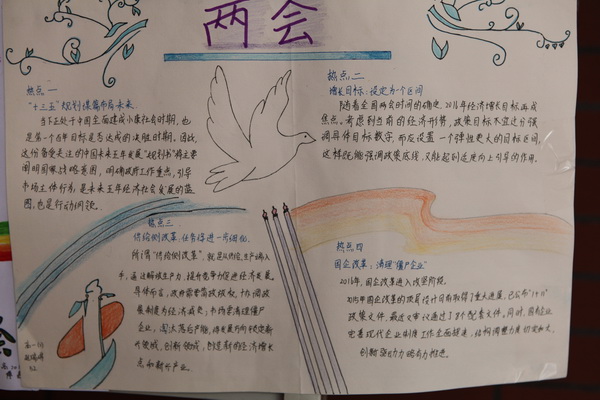 两会
热点一
"十三五"规划谋篇布局未来
当下正处于中国全面建成小康社会时期,也
是第一个百年目标能否达成的决胜时期。因此,
这份备受关注的中国未来五年发展"规划书"将主要
阐明国家战略意图,明确政府工作重点,引导
市场主体行为,是未来五年经济社会发展的蓝
图,也是行动纲领。
热点二
增长目标:设定为个区间
随着全国两会时间的确定,2016年经济增长目标再成
焦点。考虑到当前的经济形势,政策目标不宜过分强
调具体目标数字,而应设置一个弹性更大的目标区间,
这样既能强调政策底线,又能起到适度向上引导的作用。
热点三
供给侧改革,任务待进一步细化
所谓"供给侧改革",就是从供给、生产端入
手,通过解放生产力,提升竞争力促进经济发展。
具体而言,政府需要简政放权,
展制度为经济减负;书内要清理僵尸
企业,淘汰落后产能,将发展方向锁定新
兴领域,创新领域,创造新的经济增长
点和新兴产业。
热点四
国企改革,清理"僵尸企业"
2016年,国企改革进入攻坚阶段。
国企改革的顶层设计目前取得了重大进展,已公布
政策文件,
着现代企业制度工作全面提速,结构调整力度
创新驱动力